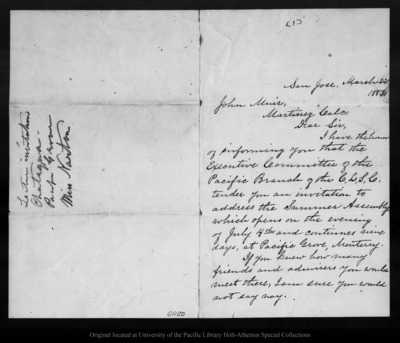 (1)
San Jose, March 22
1883
John Muir,
Martinez Cala
Dear Sir,
I have the honor
of informing you that the
Executive Committee of the
Pacific Branch of the C. L. S. C.
tender you an invitation to
address the Summer Assembly
which opens on the evening
of July 4th and continues nine
days, at Pacific Grove, Monterey.
If you knew how many
friends and admirers you would
meet there, I am sure you would
not say nay.
invitation
Chatauqua
Pacific Grove
Miss Norton
01100
Original located at University of the Pacific Library Holt-Atherton Special Collections